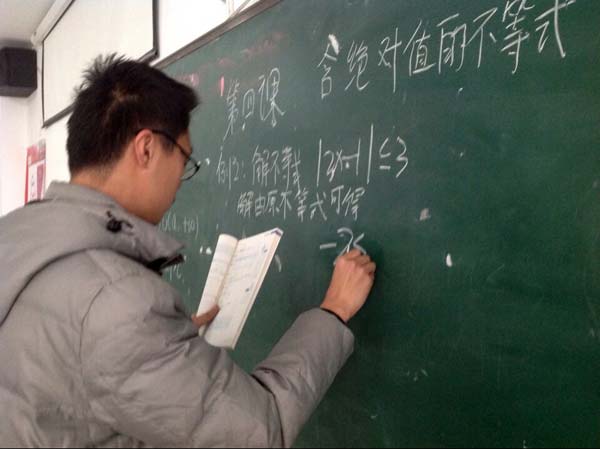 第四课 含绝对值的不等式
例2：解不等式 |2x-1|≤3
解由原不等式可得
-3≤